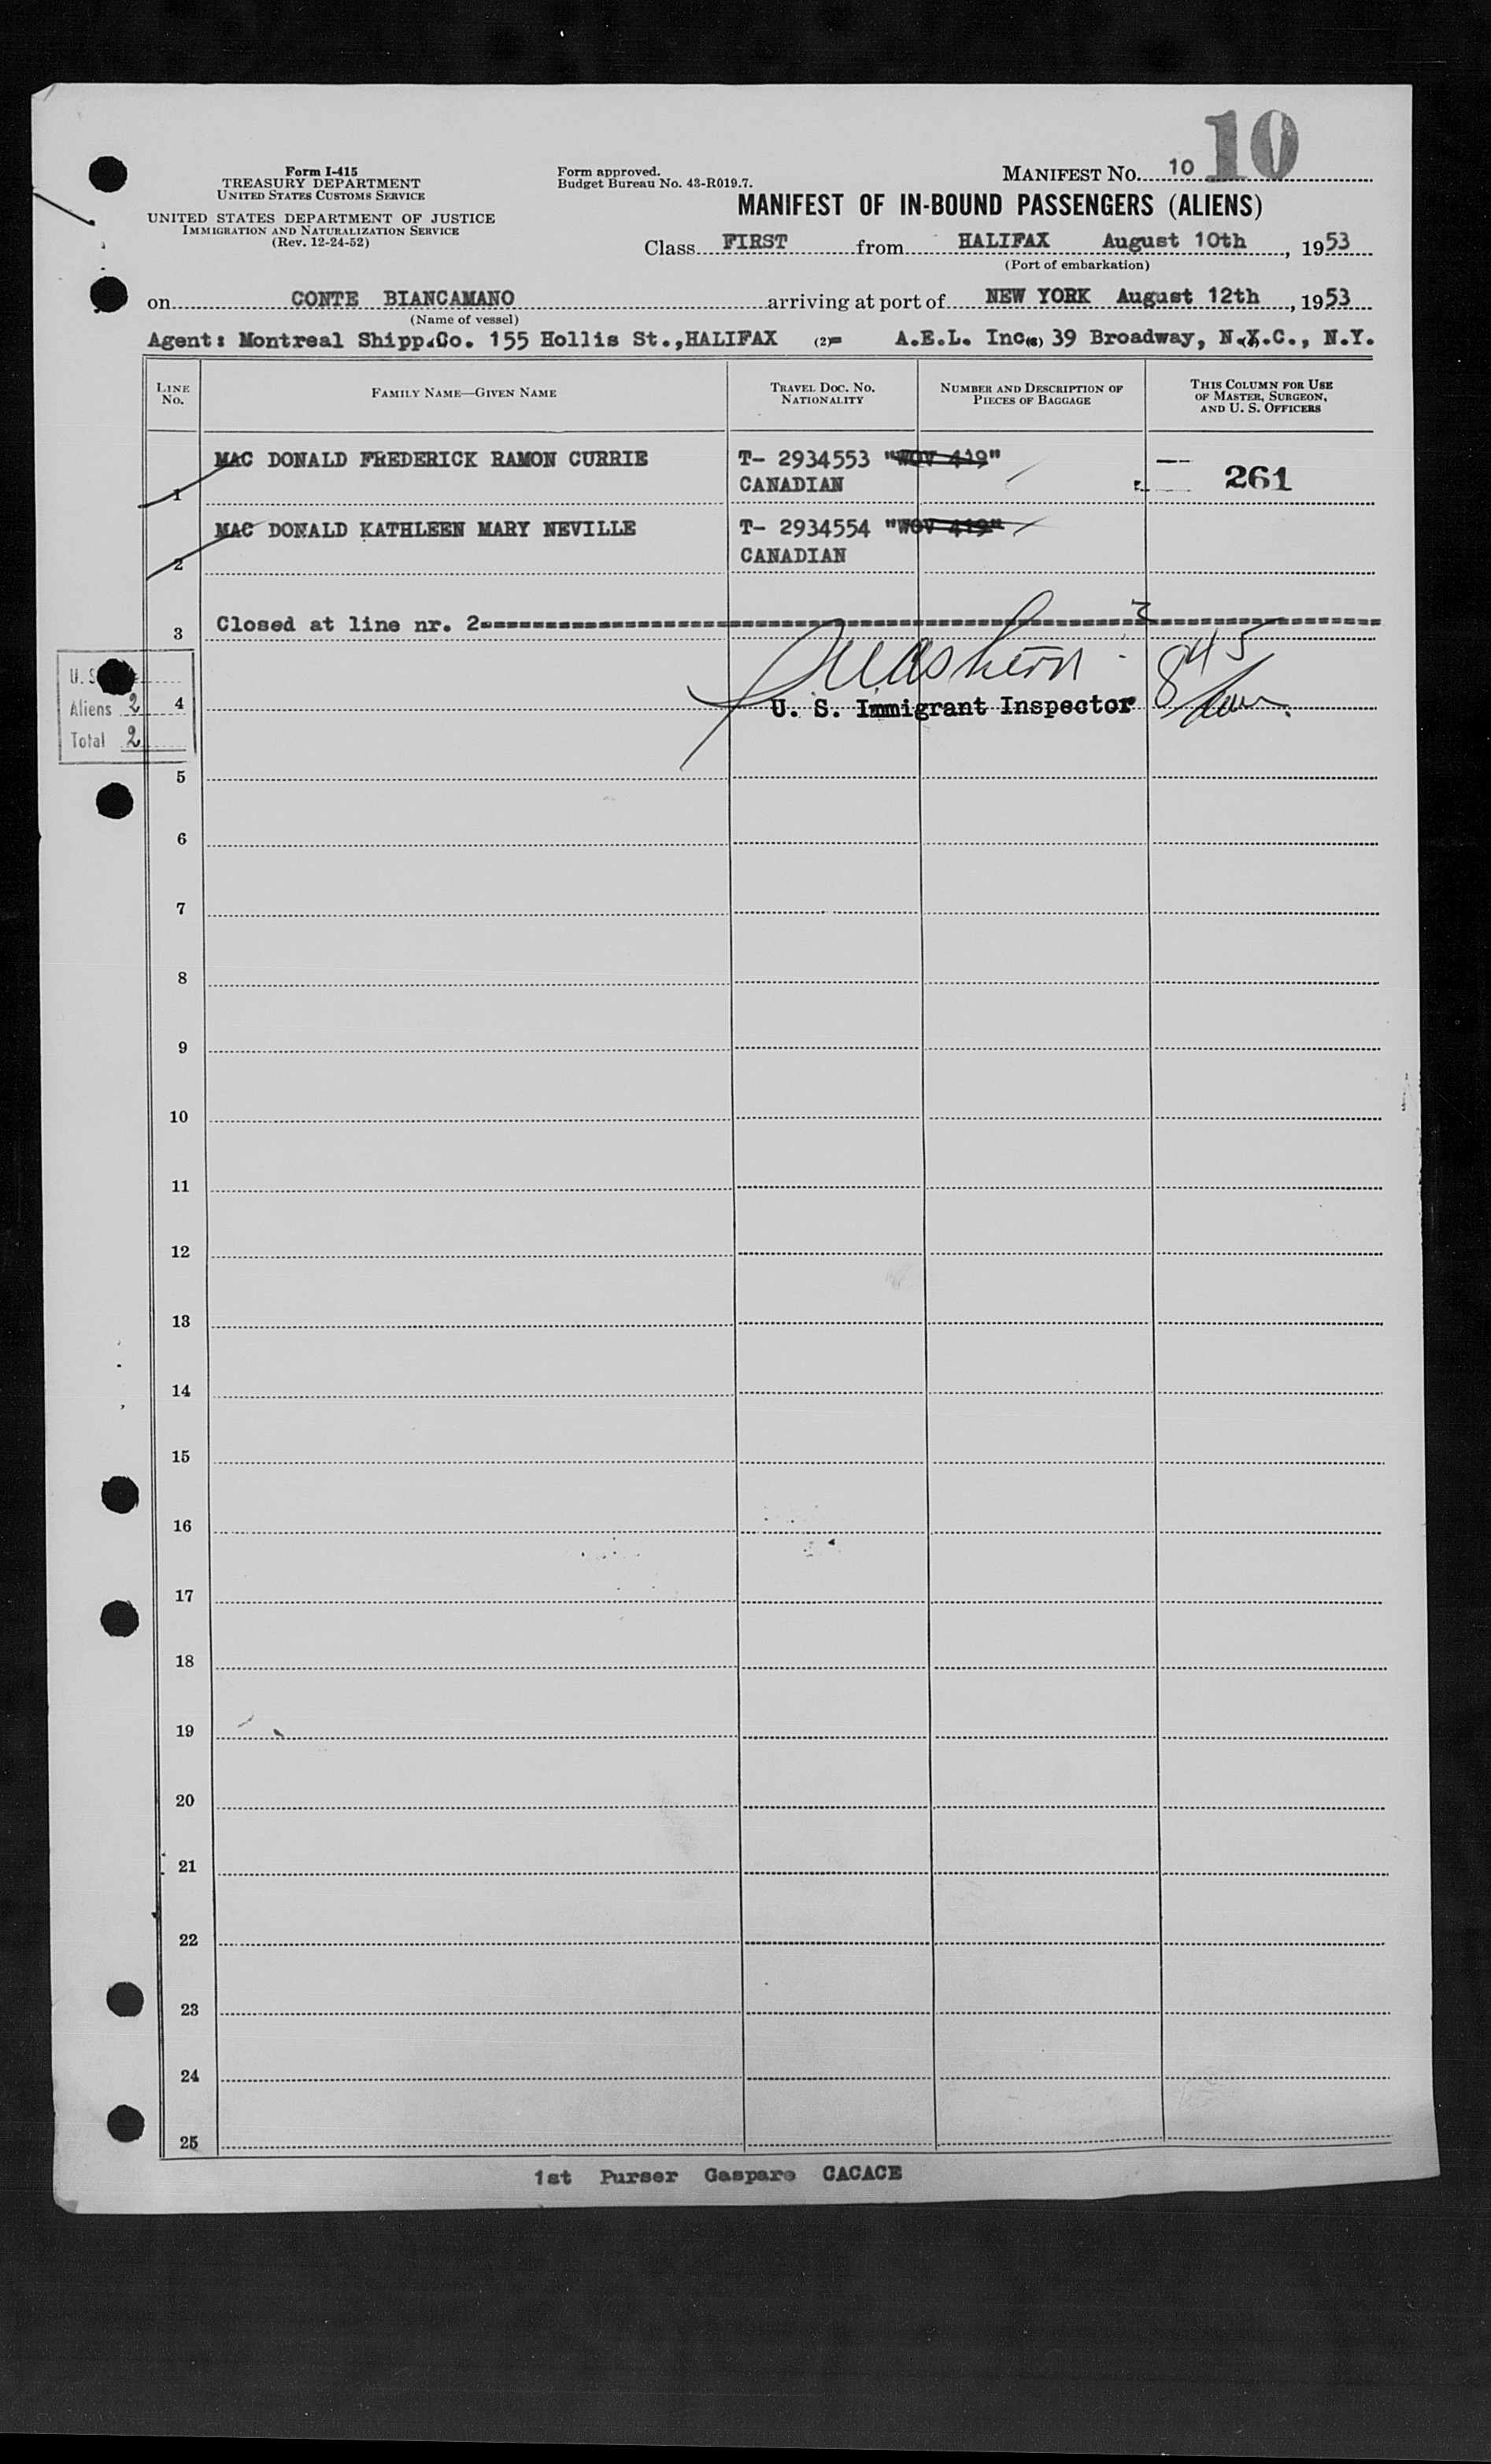 10
Form I-415
TREASURY DEPARTMENT
UNITED STATES CUSTOMS SERVICE
UNITED STATES DEPARTMENT OF JUSTICE
IMMIGRATION AND NATURALIZATION SERVICE
(Rev. 12-24-52)
Form approved.
Budget Bureau No. 43-R019.7.
MANIFEST NO. 10
MANIFEST OF IN-BOUND PASSENGERS (ALIENS)
Class FIRST from HALIFAX August 10th, 1953
(Port of embarkation)
on CONTE BIANCAMANO arriving at port of NEW YORK August 12th, 1953
(Name of vessel)
Agent: Montreal Shipp.Co. 155 Hollis St.,HALIFAX (2)= A.E.L. Inc. 39 Broadway, N.Y.C., N.Y.
LINE NO. FAMILY NAME—GIVEN NAME TRAVEL DOC. NO. NATIONALITY NUMBER AND DESCRIPTION OF PIECES OF BAGGAGE THIS COLUMN FOR USE OF MASTER, SURGEON, AND U. S. OFFICERS
1 MAC DONALD FREDERICK RAMON CURRIE T- 2934553 "WOV 419" 261
CANADIAN
2 MAC DONALD KATHLEEN MARY NEVILLE T- 2934554 "WOV 419"
CANADIAN
3 Closed at line nr. 2
845
U. S.
Aliens 2
Total 2
4 U. S. Immigrant Inspector
5
6
7
8
9
10
11
12
13
14
15
16
17
18
19
20
21
22
23
24
25
1st Purser Gaspare CACACE